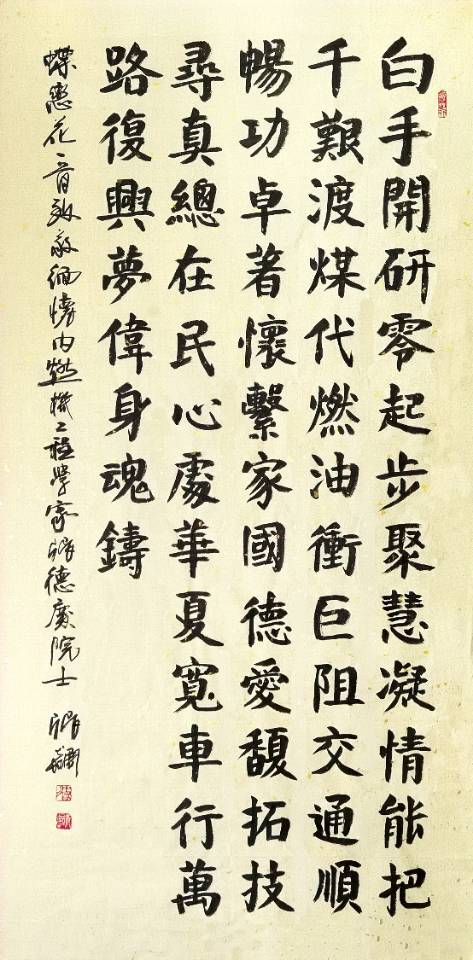 白手開研零起步聚慧凝情能把
千艱渡煤代燃油衝巨阻交通順
暢功卓著懷繫家國德愛馥拓技
尋真總在民心處華夏寬車行萬
路復興夢偉身魂鑄
蝶戀花一首致敬緬懷内燃機工程學家張德慶院士 張